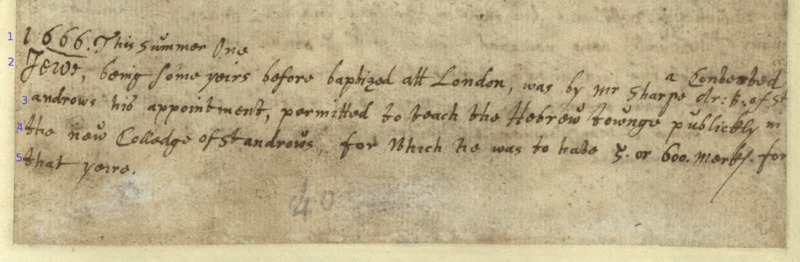 1666. This summer One
a Converted
Jewe, being some yeirs before baptized att London, was by mr Sharpe Ar: B. of St
androws his appointment, permitted to teach the Hebrew towngè publickly in
the new Colledge of St androws, for Which he was to have 5. or 600. merks. for
that yeire.
40